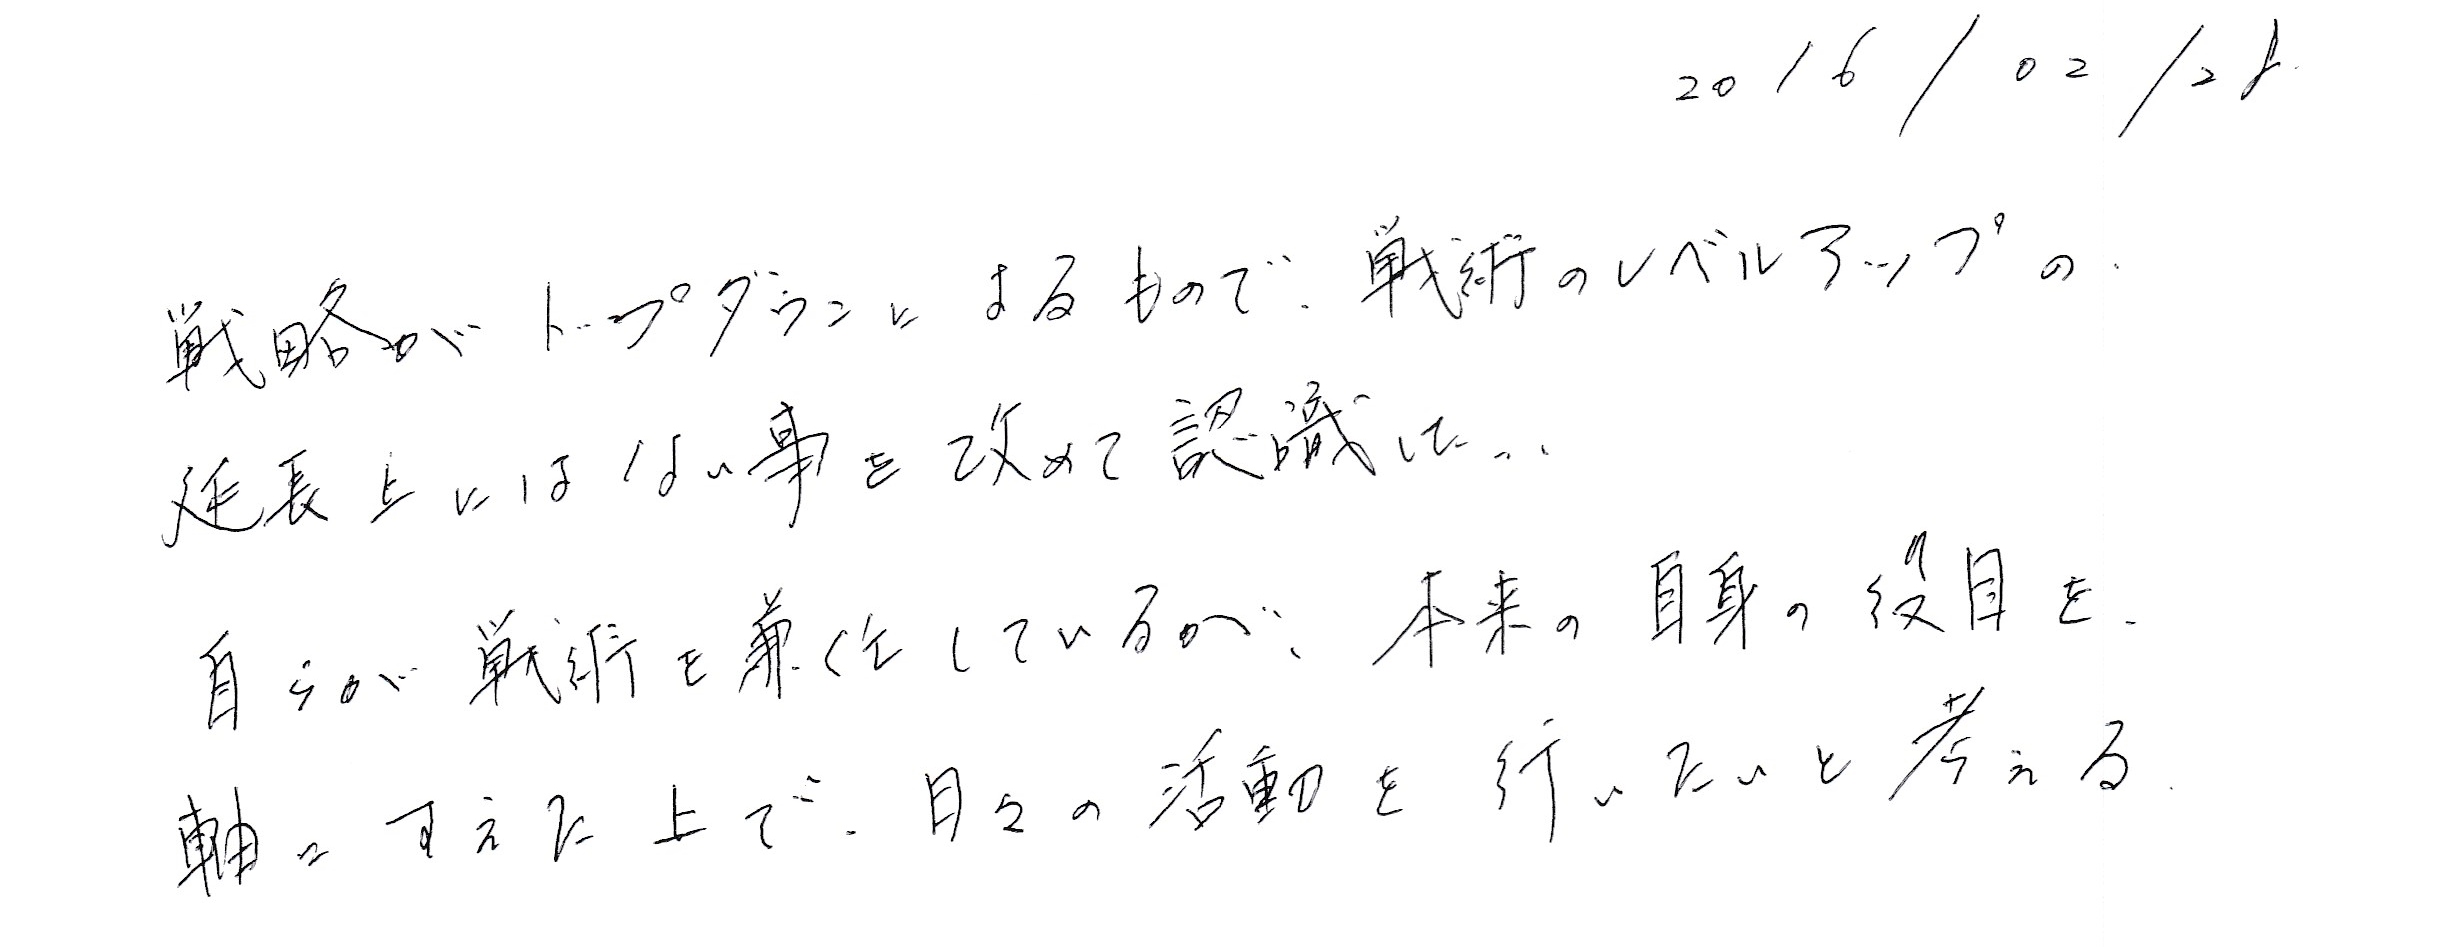 2016/02/28
戦略がトップダウンによるもので、戦術のレベルアップの
延長上にはない事を改めて認識した…
自らが戦術を兼任しているが、本来の自身の役目を、
軸にすえた上で、日々の活動を行いたいと考える。